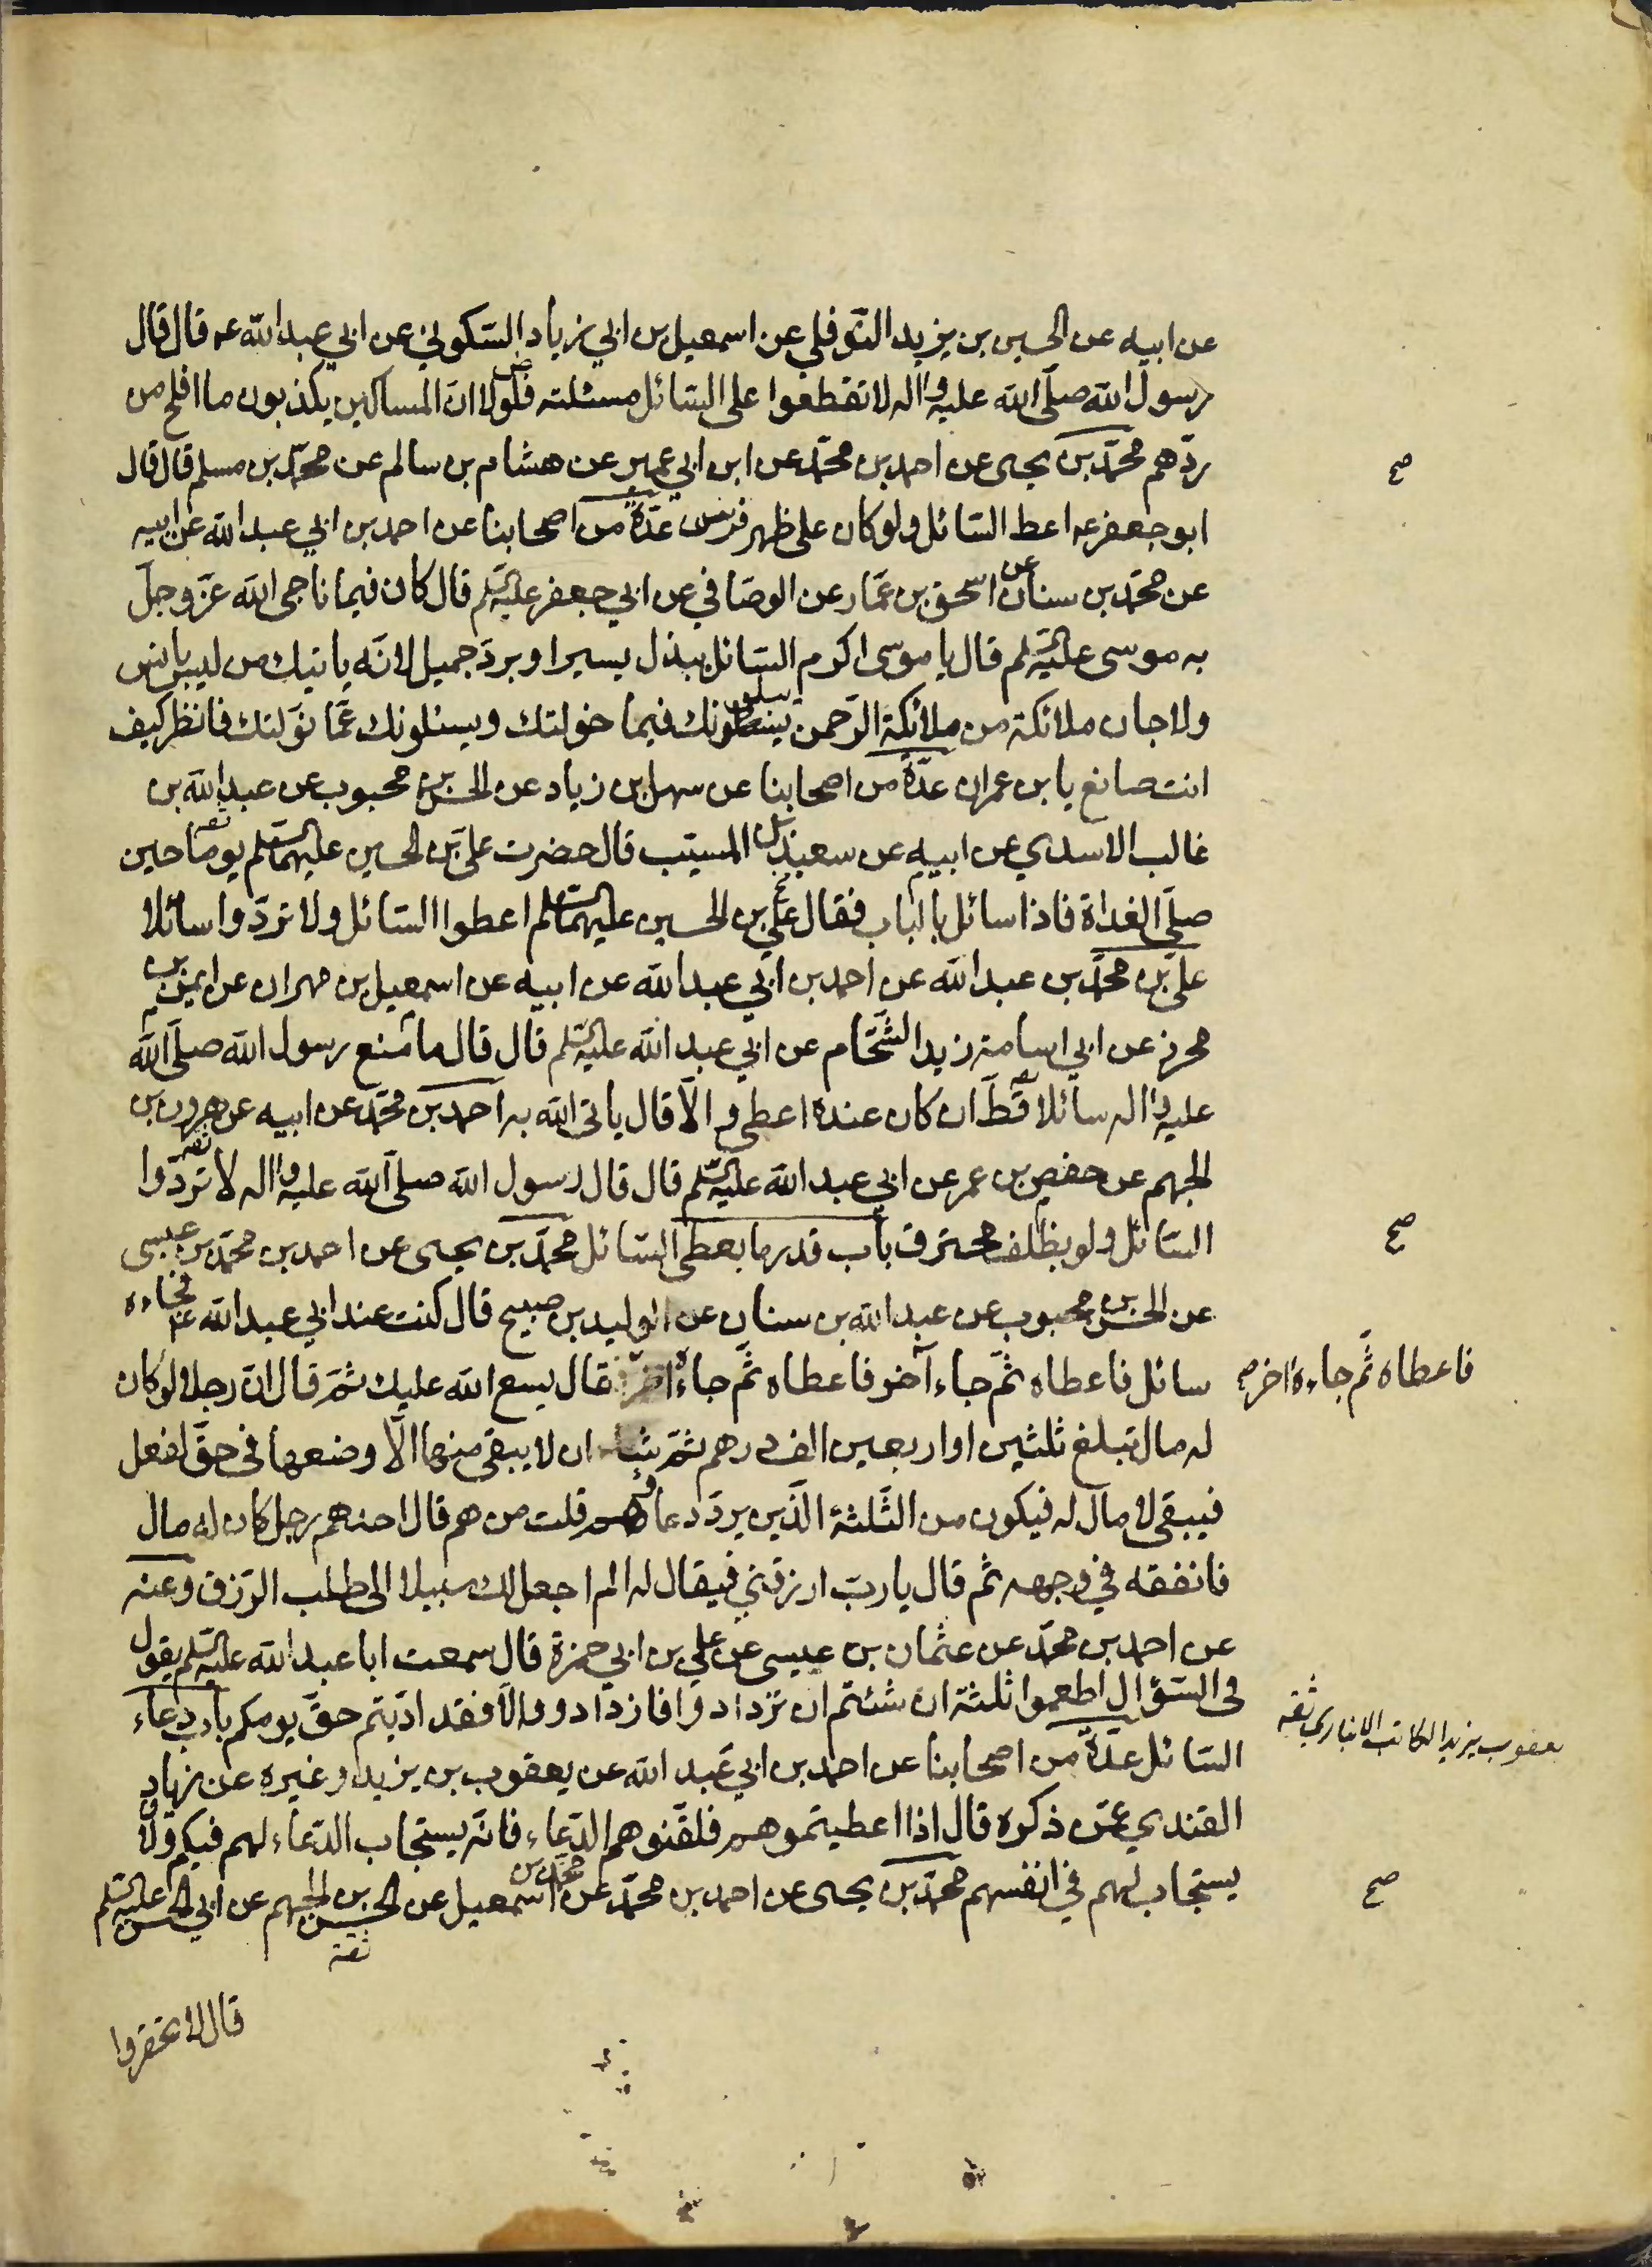 عن ابيه عن الحسين بن يزيد النوفلى عن اسمعيل بن ابي زياد السكوني عن ابي عبد الله عه قال قال
رسول الله صلى الله عليه واله لا تقطعوا على السائل مسئلته فلولا ان المساكين يكذبون ما افلح من
ردهم محمد بن يحيى عن احمد بن محمد عن ابن ابي عمير عن هشام بن سالم عن محمد بن مسلم قال قال
صح
ابو جعفر عه اعط السائل ولو كان على ظهر فرس عدة من اصحابنا عن احمد بن ابي عبد الله عن ابيه
عن محمد بن سنان عن اسحق بن عمار عن الوصافي عن ابي جعفر عليه السلم قال كان فيما ناجى الله عز وجل
به موسى عليه السلم قال يا موسى اكرم السائل ببذل يسير او برد جميل لانه ياتيك من ليس بانس
ولا جان ملائكة من ملائكة الرحمن يبلونك فيما خولتك ويسئلونك عما نولتك فانظر كيف
انت صانع يا بن عمران عدة من اصحابنا عن سهل بن زياد عن الحسن بن محبوب عن عبد الله بن
غالب الاسدي عن ابيه عن سعيد بن المسيب قال حضرت على بن الحسين عليهما السلم يوما حين
صلى الغداة فاذا سائل بالباب فقال على بن الحسين عليهما السلم اعطوا السائل ولا تردوا سائلا
على بن محمد بن عبد الله عن احمد بن ابي عبد الله عن ابيه عن اسمعيل بن مهران عن ايمن بن
محرز عن ابي اسامة زيد الشحام عن ابي عبد الله عليه السلم قال قال ما منع رسول الله صلى الله
عليه واله سائلا قط ان كان عنده اعطى والا قال ياتى الله به احمد بن محمد عن ابيه عن هرون بن
الجهم عن حفص بن عمر عن ابي عبد الله عليه السلم قال قال رسول الله صلى الله عليه واله لا تردوا
السائل ولو بظلف محترق باب قدر ما يعطى السائل محمد بن يحيى عن احمد بن محمد بن عيسى
صح
عن الحسن بن محبوب عن عبد الله بن سنان عن الوليد بن صبيح قال كنت عند ابي عبد الله عه فجاءه
سائل فاعطاه ثم جاء اخر فاعطاه ثم جاءه اخر فقال يسع الله عليك ثم قال ان رجلا لو كان
فاعطاه ثم جاءه اخر صح
له مال تبلغ ثلثين او اربعين الف درهم ثم شاء ان لا يبقى منها الا وضعها في حق لفعل
فيبقى لا مال له فيكون من الثلثة الذين يرد دعاؤهم قلت من هم قال احدهم رجل كان له مال
فانفقه في وجهه ثم قال يا رب ارزقني فيقال له الم اجعل لك سبيلا الى طلب الرزق وعنه
عن احمد بن محمد عن عثمان بن عيسى عن علي بن ابي حمزة قال سمعت ابا عبد الله عليه السلم يقول
فى السؤال اطعموا ثلثة ان شئتم ان تزدادوا فازدادوا والا فقد اديتم حق يومكم باب دعاء
السائل عدة من اصحابنا عن احمد بن ابي عبد الله عن يعقوب بن يزيد او غيره عن زياد
يعقوب بن يزيد الكاتب الانباري ثقه
القندي عمن ذكره قال اذا اعطيتموهم فلقنوهم الدعاء فانه يستجاب الدعاء لهم فيكم ولا
يستجاب لهم في انفسهم محمد بن يحيى عن احمد بن محمد عن محمد بن اسمعيل عن الحسن بن الجهم عن ابي الحسن عليه السلم
صح
ثقة
قال لا تحقروا